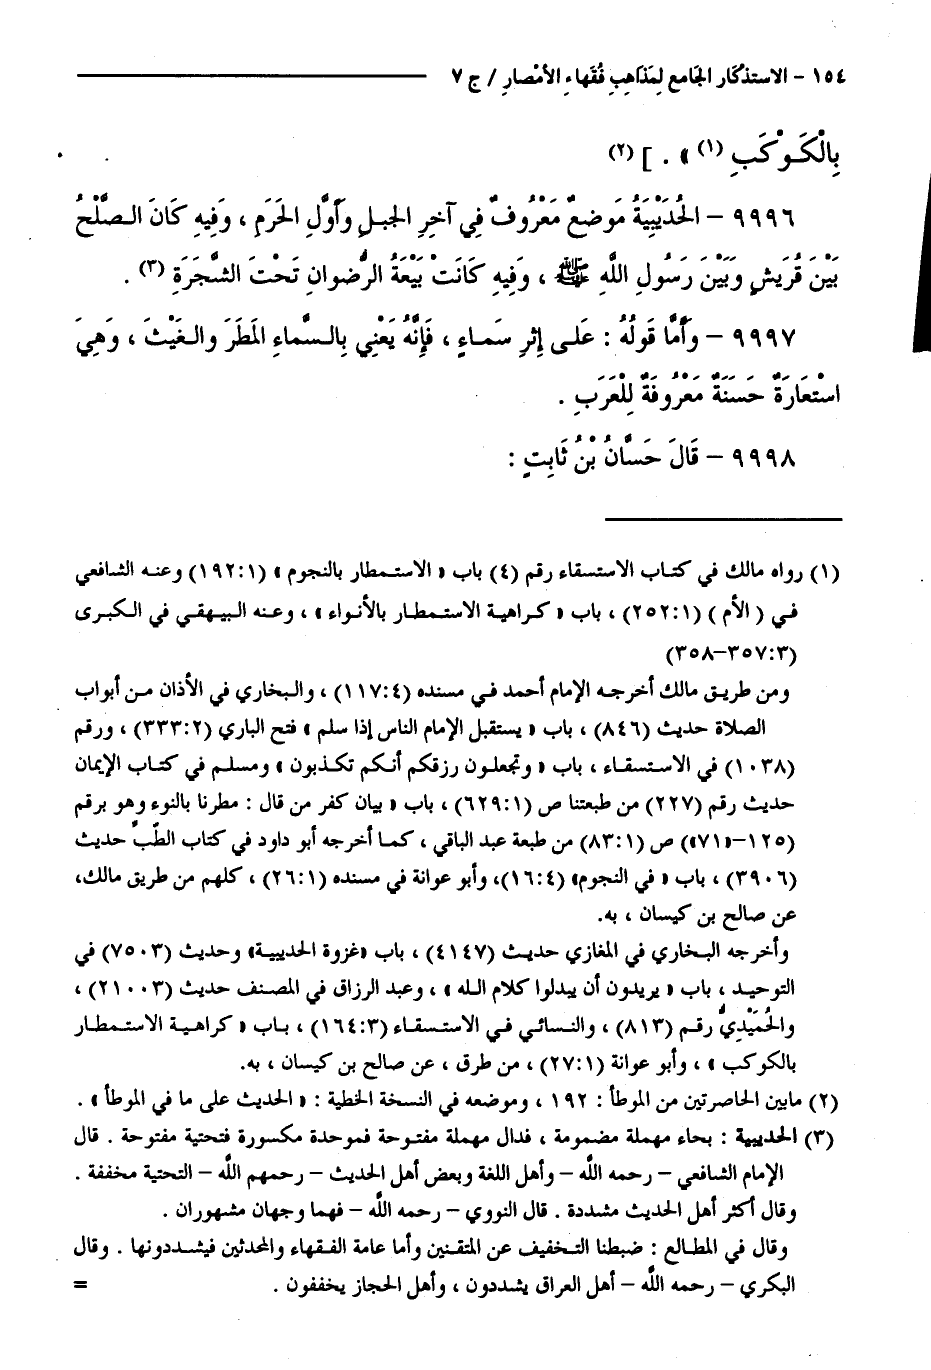 ١٥٤ - الاستذكَار الجَامع لمَذاهِبِ فُقَهاءِ الأَمْصارِ / ج ٧
بِالْكَـوْكَبِ (١) » . ] (٢)
٩٩٩٦ - الحُدَيْبِيَةُ مَوضعٌ مَعْرُوفٌ فِي آخِرِ الجبلِ وأَوَّلِ الحَرَمِ ، وَفِيهِ كَانَ الـصُّلْحُ
بَيْنَ قُرَيشٍ وَبَيْنَ رَسُولِ اللَّهِ ﷺ ، وَفِيهِ كَانَتْ بَيْعَةُ الرُّضوانِ تَحْتَ الشَّجَرَةِ (٣) .
٩٩٩٧ - وَأَمَّا قَولُهُ : عَلـى إِثرِ سَمـاءٍ ، فَإِنَّهُ يَعْنِي بِالـسَّماءِ المَطَرَ والـغَيْثَ ، وَهِيَ
اسْتْعارَةٌ حَسَنَةٌ مَعْرُوفَةٌ لِلْعَرَبِ .
٩٩٩٨ - قَالَ حَسَّانُ بْنُ ثَابِتٍ :
(١) رواه مالك في كتـاب الاستسقاء رقم (٤) باب « الاستـمطار بالنجوم » (١٩٢:١) وعنـه الشافعي
فـي ( الأم ) (٢٥٢:١) ، باب « كـراهيـة الاستـمطـار بالأنواء » ، وعـنه الـبيـهقـي في الـكبرى
(٣٥٧:٣-٣٥٨)
ومن طريـق مالك أخرجـه الإمام أحمد فـي مسنده (١١٧:٤) ، والـبخاري في الأذان مـن أبواب
الصلاة حديث (٨٤٦) ، باب « يستقبل الإمام الناس إذا سلم » فتح الباري (٣٣٣:٢) ، ورقم
(١٠٣٨) في الاستـسقاء ، باب « وتجعلـون رزقكم أنـكم تكـذبون » ومسلـم في كتـاب الإيمان
حديث رقم (٢٢٧) من طبعتنا ص (٦٢٩:١) ، باب « بيان كفر من قال : مطرنا بالنوء وهو برقم
(١٢٥-«٧١») ص (٨٣:١) من طبعة عبد الباقي ، كمـا أخرجه أبو داود في كتاب الطّبّ حديث
(٣٩٠٦) ، باب « في النجوم» (١٦:٤)، وأبو عوانة في مسنده (٢٦:١) ، كلهم من طريق مالك،
عن صالح بن كيسان ، به.
وأخرجه البـخاري في المغازي حديـث (٤١٤٧) ، باب «غزوة الحديبية» وحديث (٧٥٠٣) في
التوحيـد ، باب « يريدون أن يبدلوا كلام اللـه » ، وعبد الرزاق في المصنف حديث (٢١٠٠٣) ،
والحُمَيْدِيُّ رقـم (٨١٣) ، والنسـائي فـي الاستـسقاء (١٦٤:٣) ، بـاب « كراهـية الاستـمطار
بالكوكب » ، وأبو عوانة (٢٧:١) ، من طرق ، عن صالح بن كيسان ، به.
(٢) مابين الحاصرتين من الموطأ : ١٩٢ ، وموضعه في النسخة الخطية : « الحديث على ما في الموطأ » .
(٣) الحديبية : بحاء مهملة مضمومة ، فدال مهملة مفتـوحة فموحدة مكسورة فتحتية مفتوحة . قال
الإمام الشافعي - رحمه اللَّه - وأهل اللغة وبعض أهل الحديث - رحمهم اللَّه - التحتية مخففة .
وقال أكثر أهل الحديث مشددة . قال النووي - رحمه اللَّه - فهما وجهان مشهوران .
وقال في المطـالع : ضبطنا التـخفيف عن المتقـنين وأما عامة الفـقهاء والمحدثين فيشـددونها . وقال
البكري - رحمه اللَّه - أهل العراق يشددون ، وأهل الحجاز يخففون . =